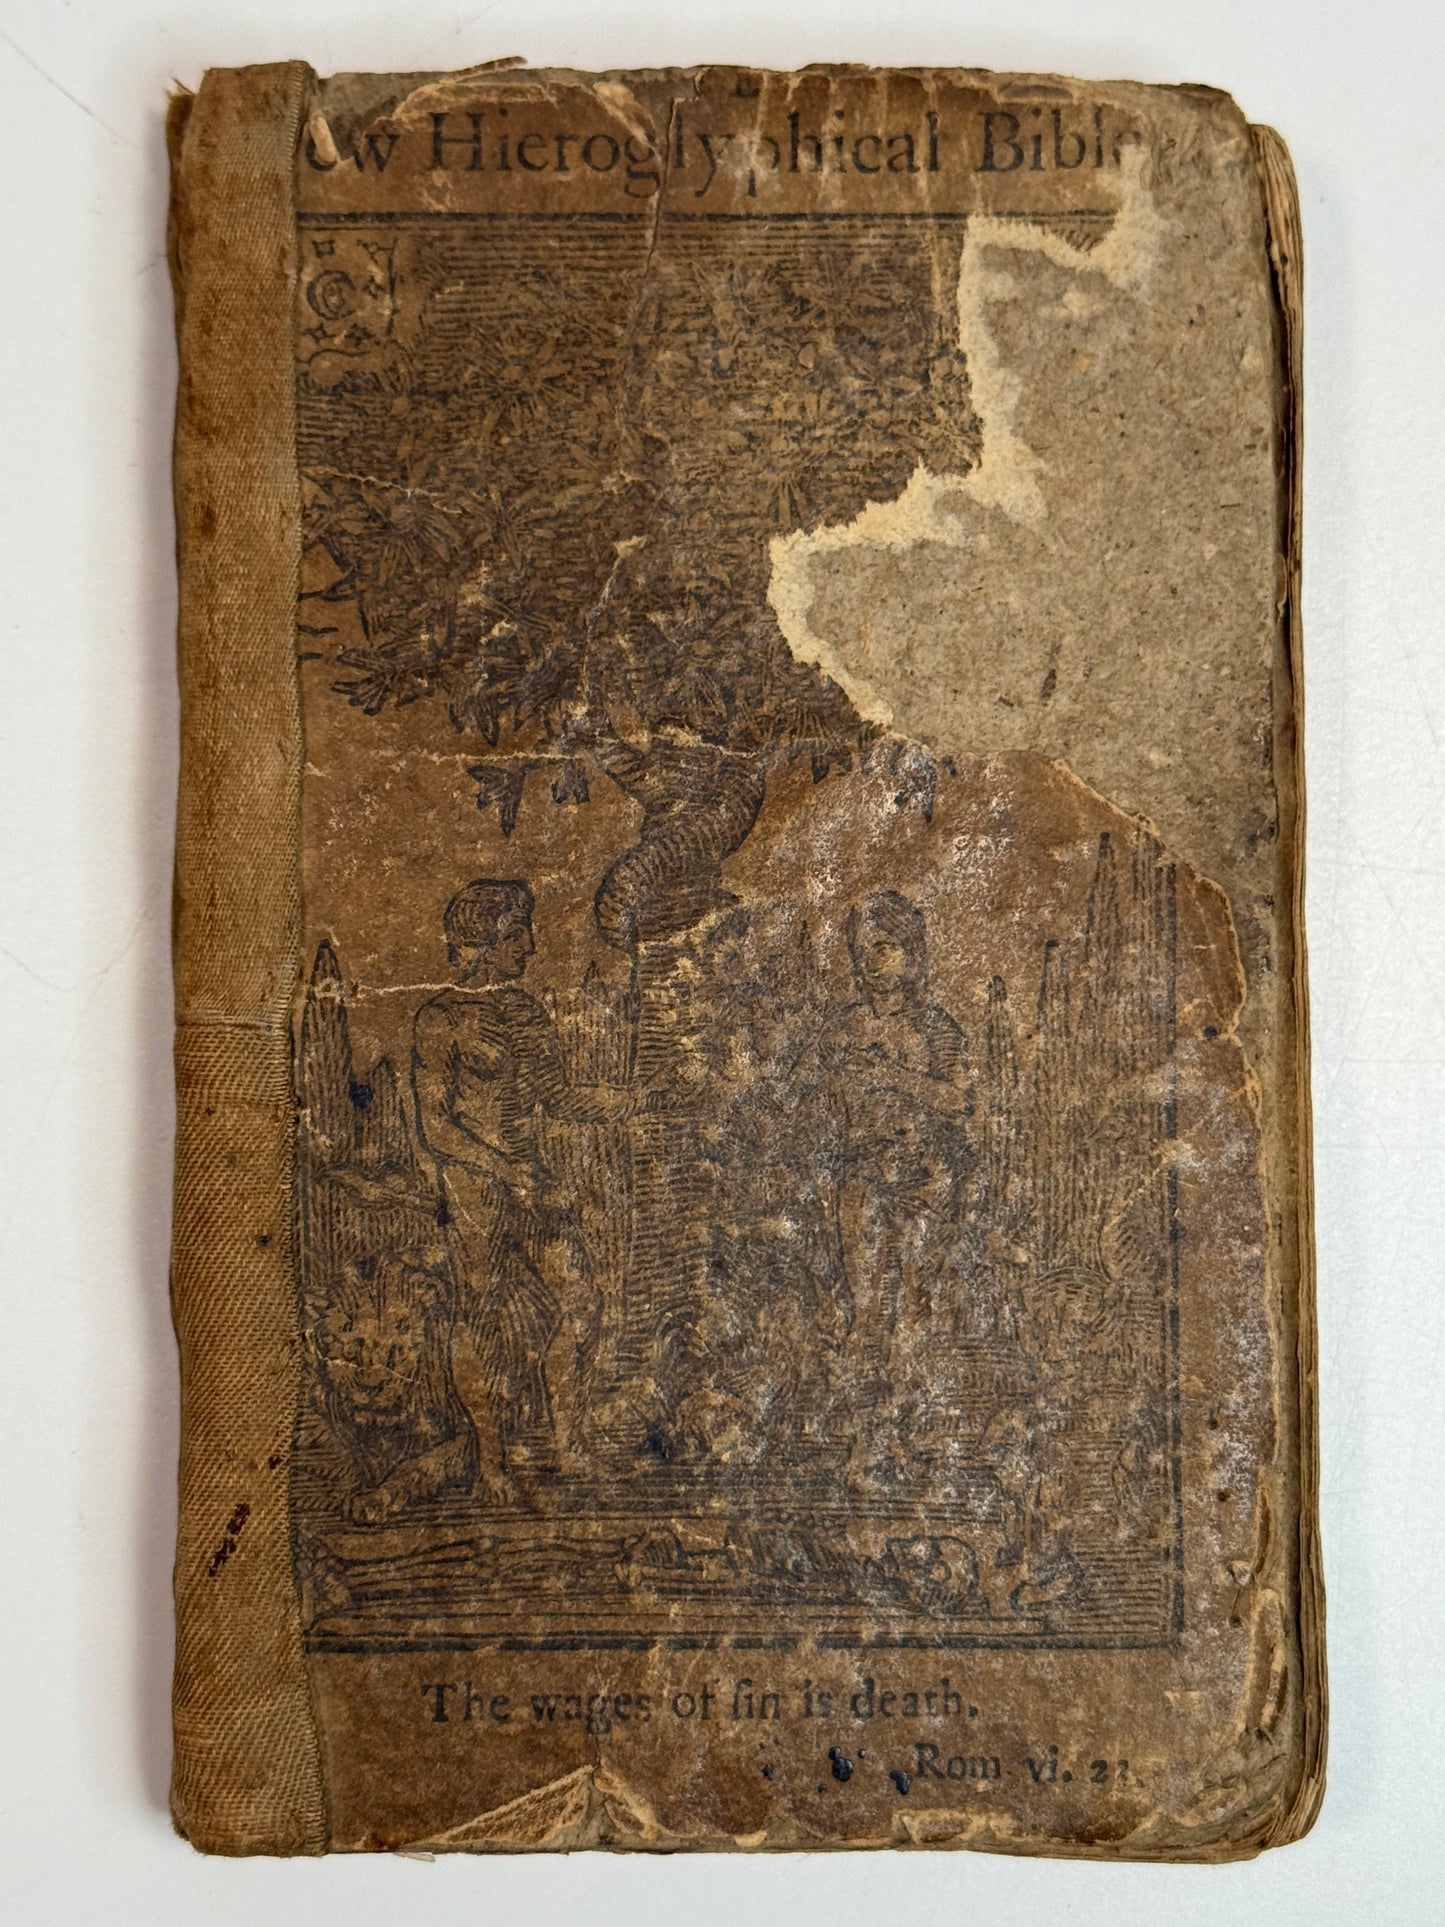 ew Hieroglyphical Bible
The wages of ſin is death.
Rom vi. 23.